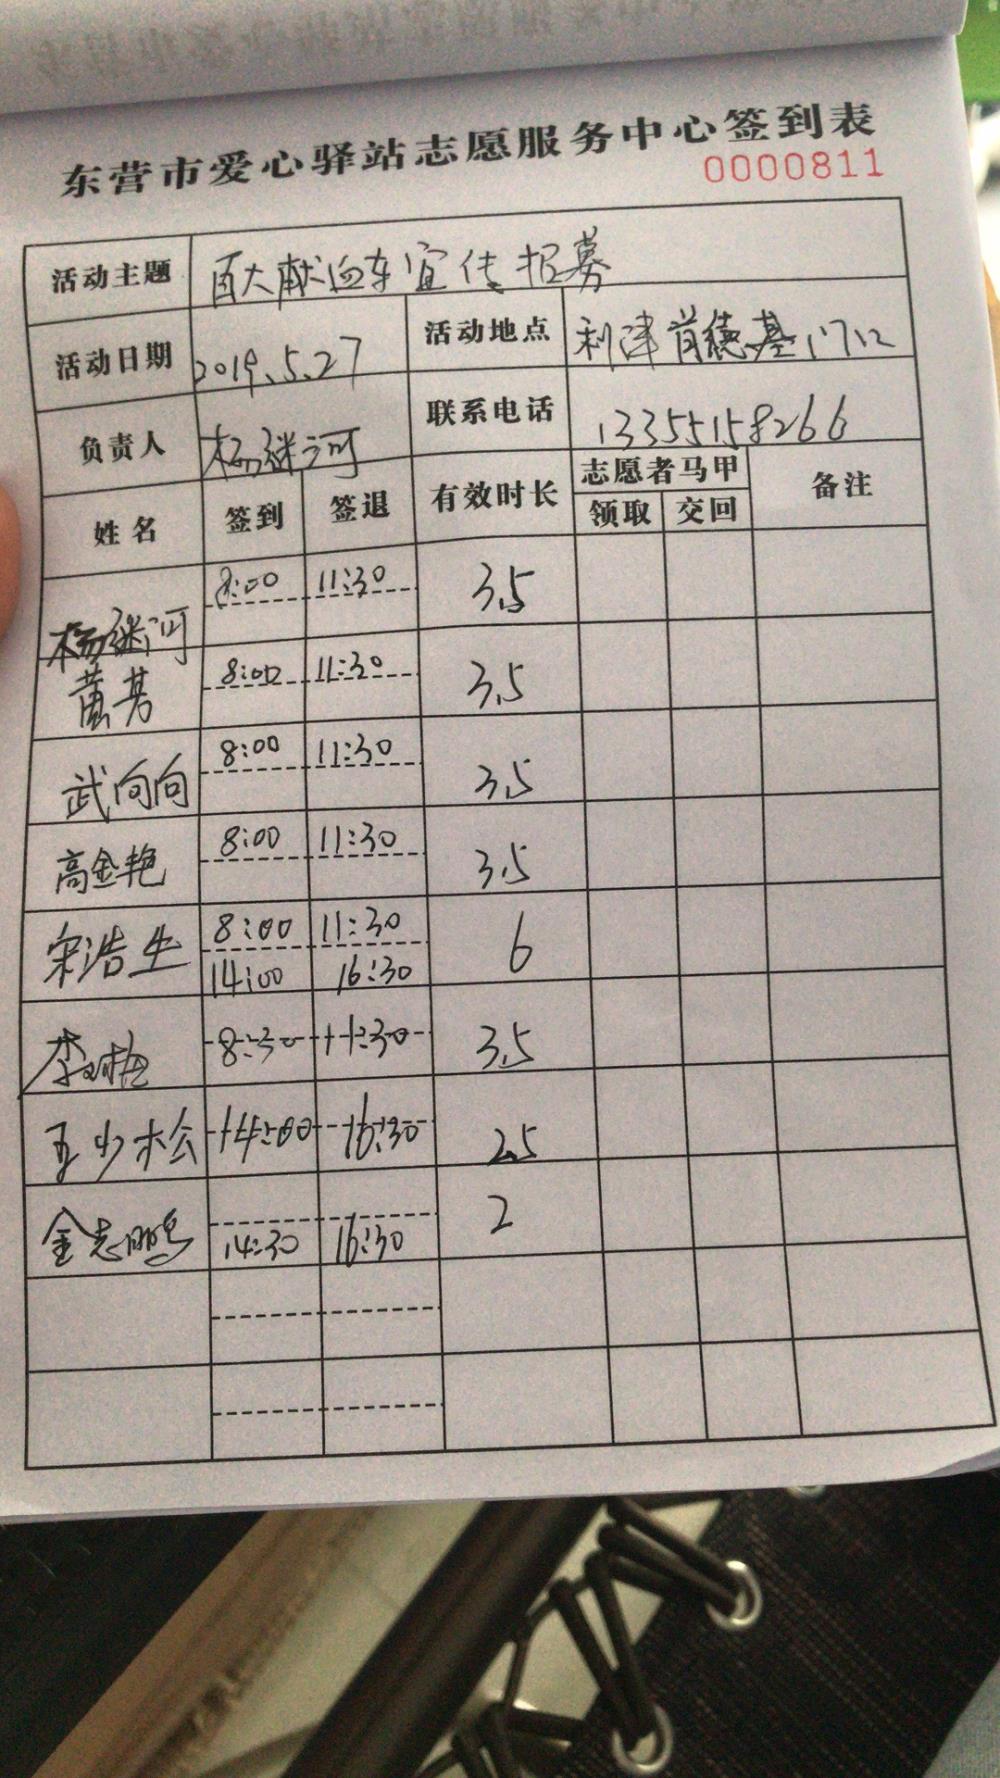 东营市爱心驿站志愿服务中心签到表
0000811
活动主题 百大献血车宣传招募
活动日期 2019.5.27 活动地点 利津肯德基门口
负责人 杨继河 联系电话 13355158266
姓名 签到 签退 有效时长 志愿者马甲 备注
领取 交回
杨继河 8:00 11:30 3.5
黄 8:00 11:30 3.5
武向向 8:00 11:30 3.5
高金艳 8:00 11:30 3.5
宋浩生 8:00 11:30 6
14:00 16:30
李 梅 8:30 11:30 3.5
王少松 14:00 16:30 2.5
金志鹏 14:30 16:30 2